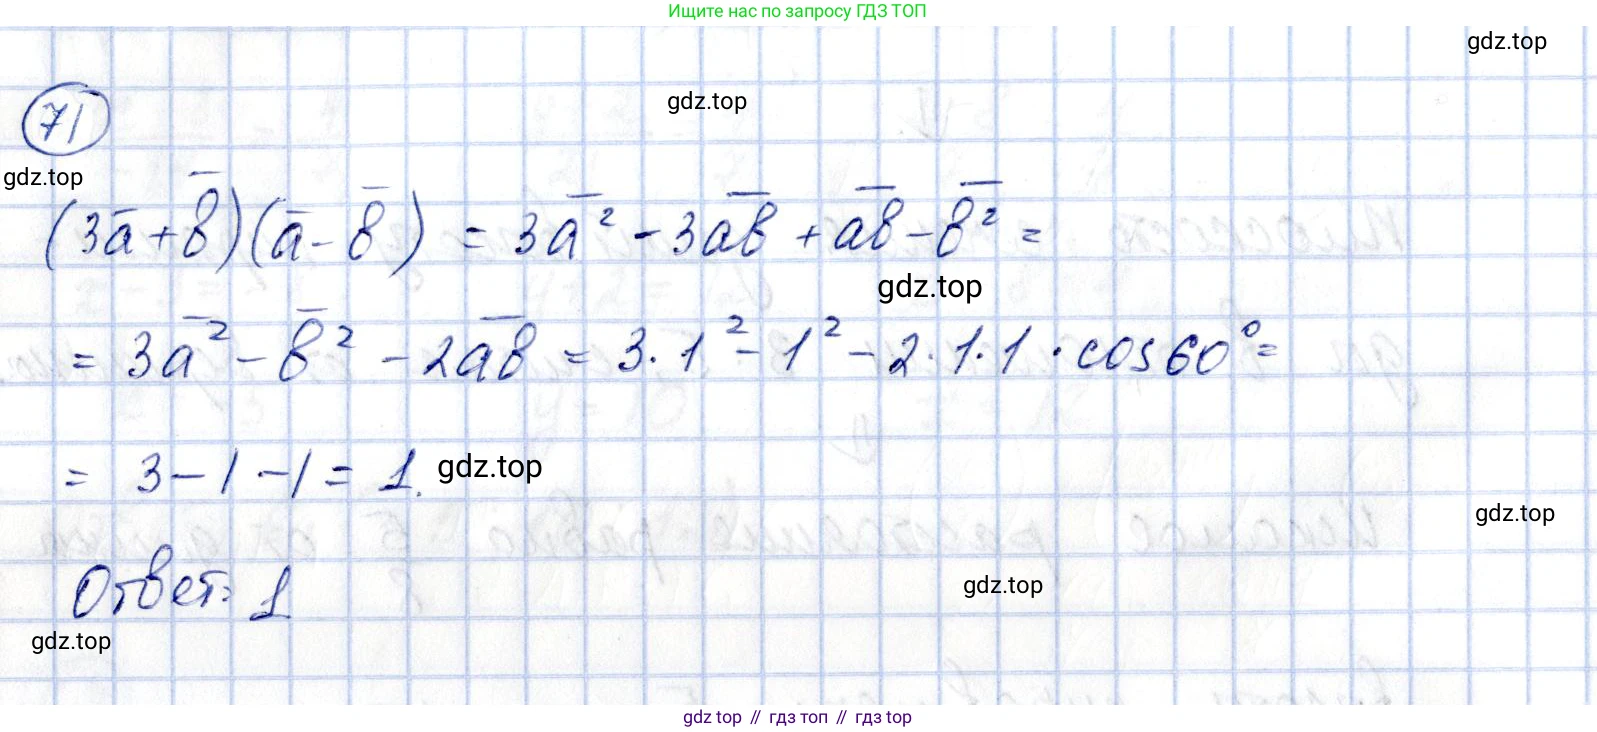 Ищите нас по запросу ГДЗ ТОП
gdz.top
gdz.top
71
gdz.top
(3a̅ + b̅)(a̅ - b̅) = 3a̅² - 3a̅b̅ + a̅b̅ - b̅² =
gdz.top
= 3a̅² - b̅² - 2a̅b̅ = 3·1² - 1² - 2·1·1·cos60° =
= 3 - 1 - 1 = 1.
gdz.top
gdz.top
Ответ: 1
gdz.top
gdz.top
gdz top // гдз топ // gdz top